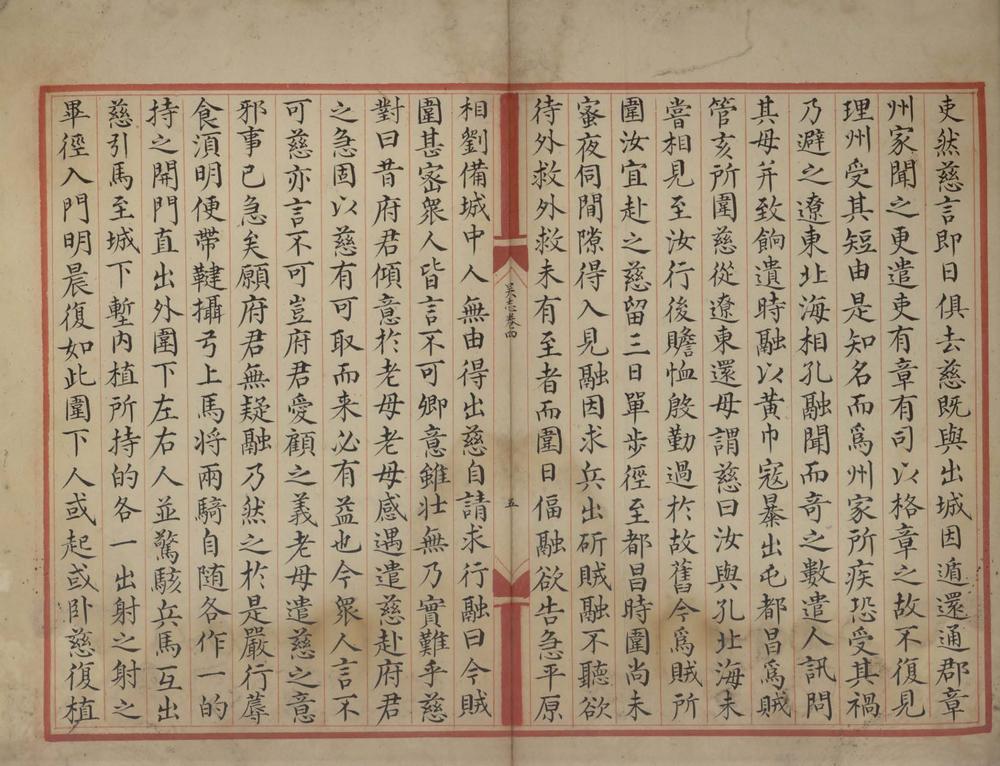 吏然慈言即日俱去慈既與出城因遁還通郡章
州家聞之更遣吏有章有司以格章之故不復見
理州受其短由是知名而爲州家所疾恐受其禍
乃避之遼東北海相孔融聞而奇之數遣人訊問
其母并致餉遺時融以黃巾寇暴出屯都昌爲賊
管亥所圍慈從遼東還母謂慈曰汝與孔北海未
嘗相見至汝行後贍恤殷勤過於故舊今爲賊所
圍汝宜赴之慈留三日單步徑至都昌時圍尚未
宻夜伺間隙得入見融因求兵出斫賊融不聽欲
待外救外救未有至者而圍日偪融欲告急平原
吴志卷四
五
相劉備城中人無由得出慈自請求行融曰今賊
圍甚宻衆人皆言不可卿意雖壯無乃實難乎慈
對曰昔府君傾意於老母老母感遇遣慈赴府君
之急固以慈有可取而来必有益也今衆人言不
可慈亦言不可豈府君愛顧之義老母遣慈之意
邪事已急矣願府君無疑融乃然之於是嚴行蓐
食湏明便帶鞬攝弓上馬将兩騎自随各作一的
持之開門直出外圍下左右人並驚駭兵馬互出
慈引馬至城下塹内植所持的各一出射之射之
畢徑入門明晨復如此圍下人或起或卧慈復植